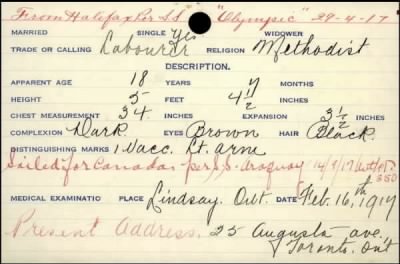 From Halifax Per S.S. "Olympic" 29-4-17
MARRIED SINGLE Yes WIDOWER
TRADE OR CALLING Labourer RELIGION Methodist
DESCRIPTION.
APPARENT AGE 18 YEARS 7 MONTHS
HEIGHT 5 FEET 4½ INCHES
CHEST MEASUREMENT 34 INCHES EXPANSION 3½ INCHES
COMPLEXION Dark EYES Brown HAIR Black
DISTINGUISHING MARKS 1 Vacc. Lt. arm
Sailed for Canada per S.S. Araguay 14/8/17
350
MEDICAL EXAMINATIO PLACE Lindsay. Ont. DATE Feb. 16th 1917
Present Address. 25 Augusta ave.
Toronto. Ont